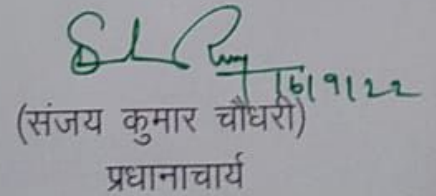 16/9/22
(संजय कुमार चौधरी)
प्रधानाचार्य